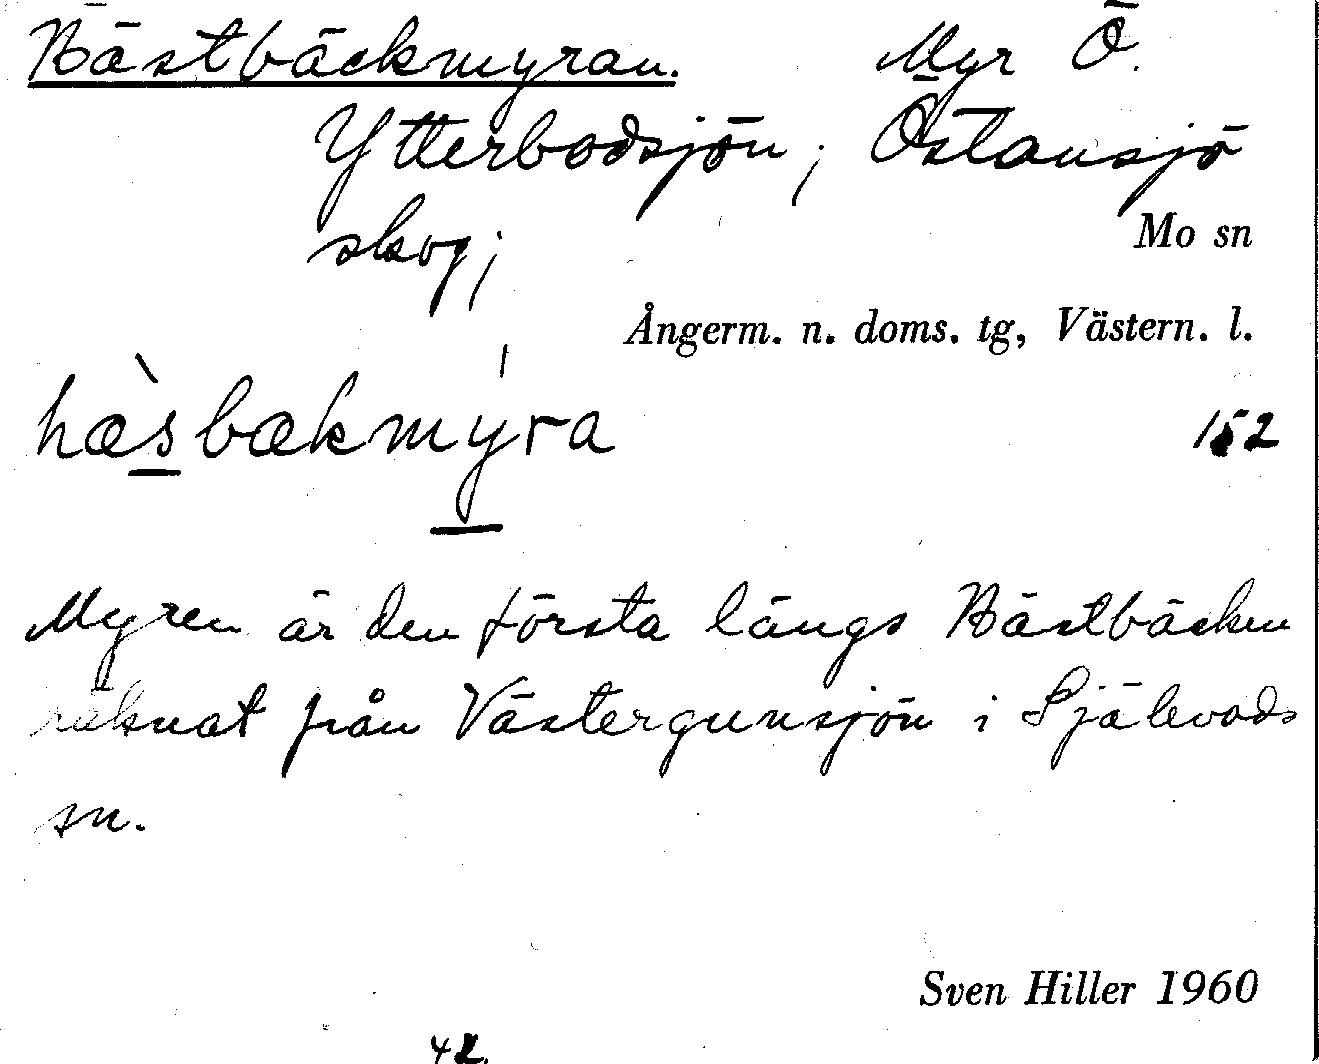 Hästbäckmyran. Myr Ö.
Ytterbodsjön; Östansjö
skog;
Mo sn
Ångerm. n. doms. tg, Västern. l.
hæ̀sbækmýra
152
Myren är den första längs Hästbäcken
räknat från Västergunsjön i Själevads
sn.
Sven Hiller 1960
42.